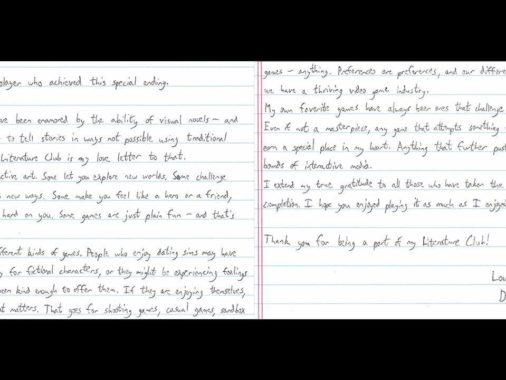 player who achieved this special ending.
been enamored by the ability of visual novels - and
to tell stories in ways not possible using traditional
Literature Club is my love letter to that.
active art. Some let you explore new worlds. Some challenge
new ways. Some make you feel like a hero or a friend,
hard on you. Some games are just plain fun - and that's
different kinds of games. People who enjoy dating sims may have
for fictional characters, or they might be experiencing feelings
been kind enough to offer them. If they are enjoying themselves,
matters. That goes for shooting games, casual games, sandbox
games - anything. Preferences are preferences, and our differe
we have a thriving video game industry.
My own favorite games have always been ones that challenge
Even if not a masterpiece, any game that attempts something
earn a special place in my heart. Anything that further pus
bounds of interactive media.
I extend my true gratitude to all those who have taken the
completion. I hope you enjoyed playing it as much as I enjoye
Thank you for being a part of my Literature Club!
Lov
D